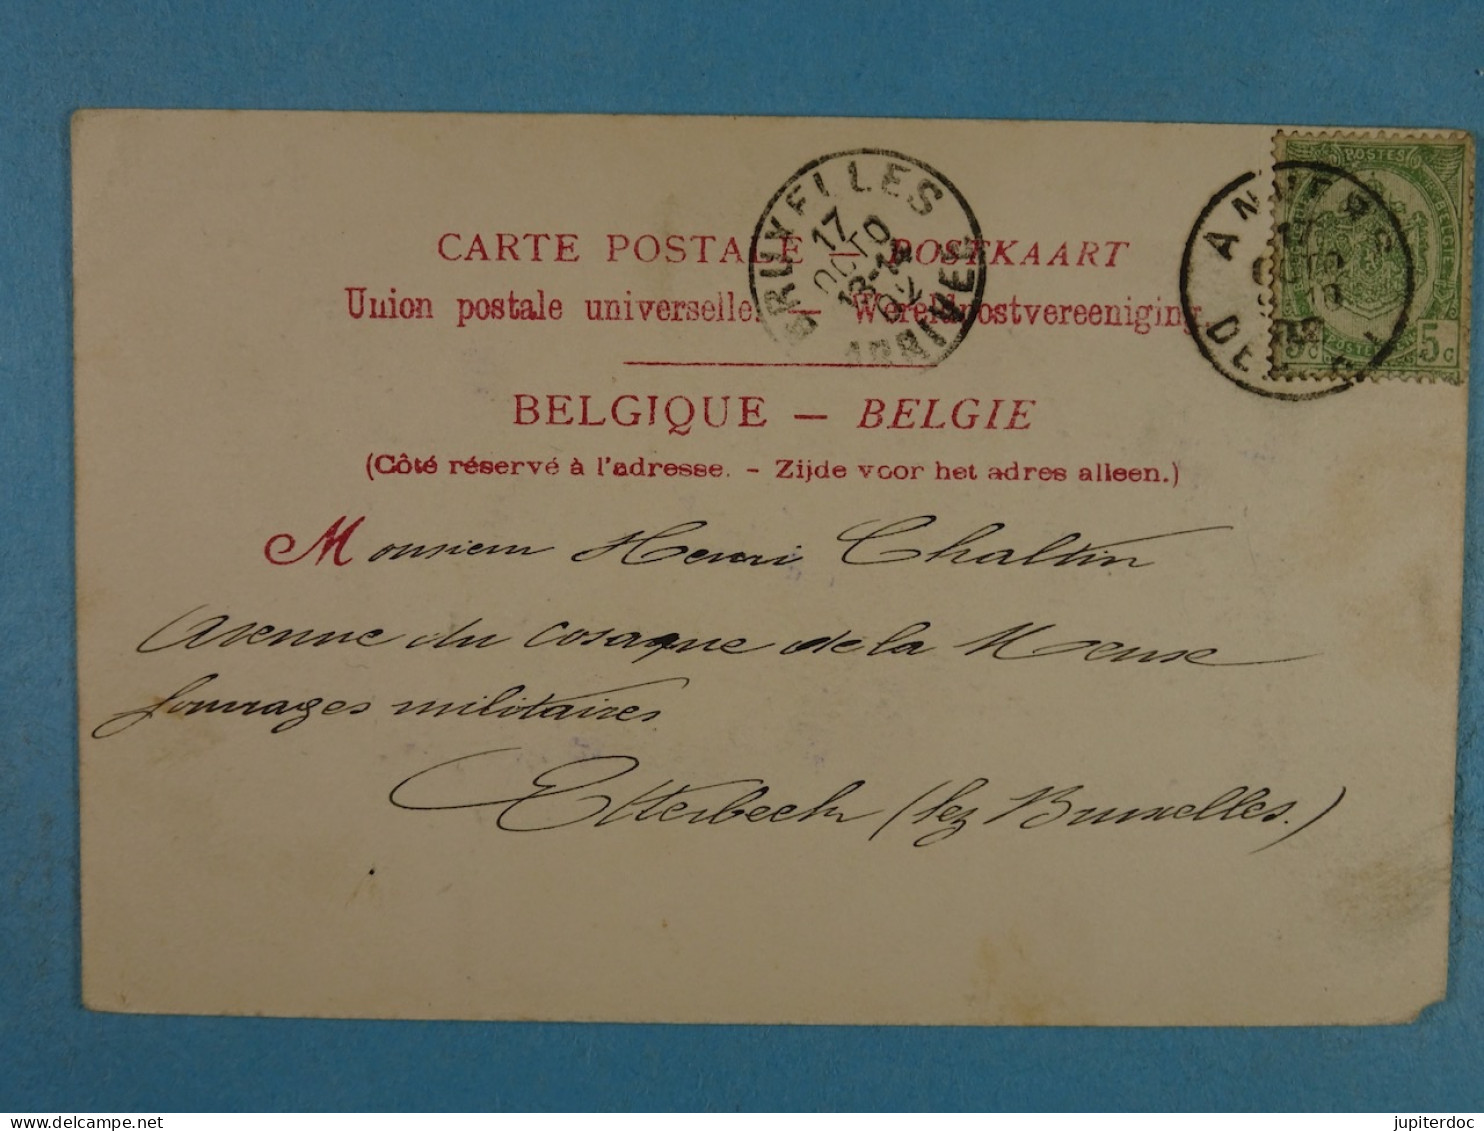 CARTE POSTALE — POSTKAART
Union postale universelle. — Wereldpostvereeniging
BELGIQUE — BELGIE
(Côté réservé à l'adresse. - Zijde voor het adres alleen.)
Monsieur Henri Chaltin
Avenue du cosaque de la Meuse
fourrages militaires
Etterbeek (lez Bruxelles.)
BRUXELLES
17
OCTO
02
ARRIVEE
ANVERS
OCTO
10
POSTES
BELGIQUE
5c 5c
delcampe.net
jupiterdoc